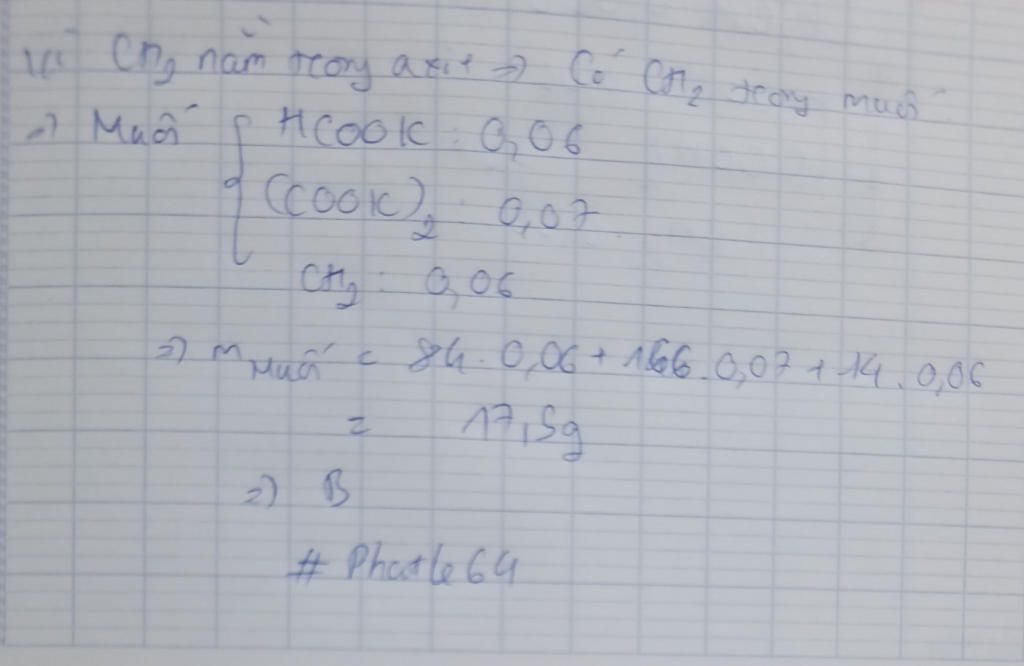 Vì CH2 nằm trong axit => Có CH2 trong muối
=> Muối { HCOOK : 0,06
(COOK)2 : 0,07
CH2 : 0,06
=> mMuối = 84 . 0,06 + 166 . 0,07 + 14 . 0,06
= 17,5g
=> B
# Phatle64